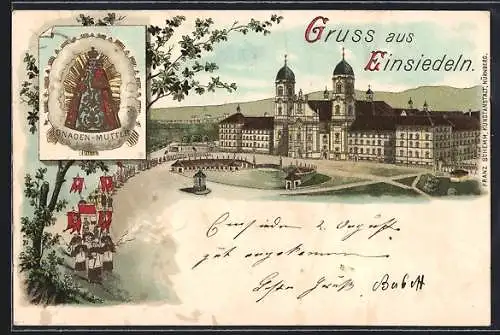 Gruss aus
Einsiedeln.
GNADEN-MUTTER
FRANZ SCHEMM, KUNSTANSTALT, NÜRNBERG.
2. August
gut angekommen
Beste Grüße